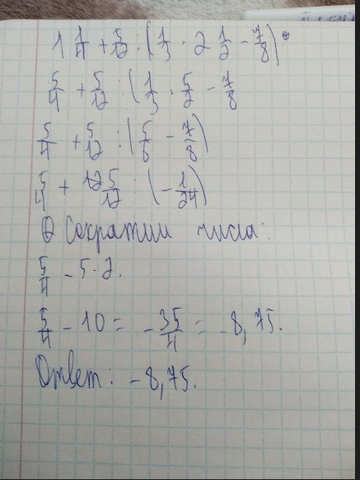 1 1/4 + 5/12 : (1/3 · 2 1/2 - 7/8)
5/4 + 5/12 : (1/3 · 5/2 - 7/8
5/4 + 5/12 : (5/6 - 7/8)
5/4 + 5/12 : (-1/24)
Сократим числа:
5/4 - 5·2.
5/4 - 10 = -35/4 = -8,75.
Ответ: -8,75.